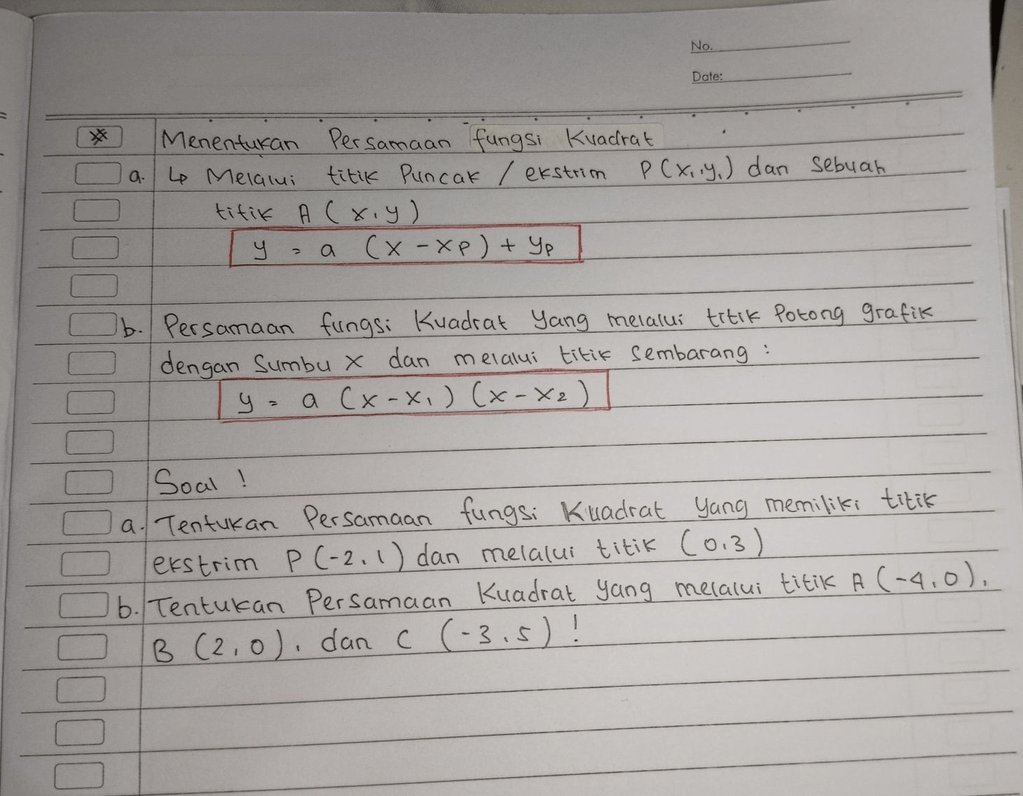 No.
Date:
Menentukan Persamaan fungsi Kuadrat
a. ↳ Melalui titik Puncak / ekstrim P(x,,y,) dan sebuah
titik A (x,y)
y = a (x - xp) + yp
b. Persamaan fungsi Kuadrat yang melalui titik Potong grafik
dengan Sumbu x dan melalui titik sembarang :
y = a (x - x₁) (x - x₂)
Soal !
a. Tentukan Persamaan fungsi Kuadrat yang memiliki titik
ekstrim P (-2,1) dan melalui titik (0,3)
b. Tentukan Persamaan Kuadrat yang melalui titik A (-4,0),
B (2,0), dan C (-3,5) !